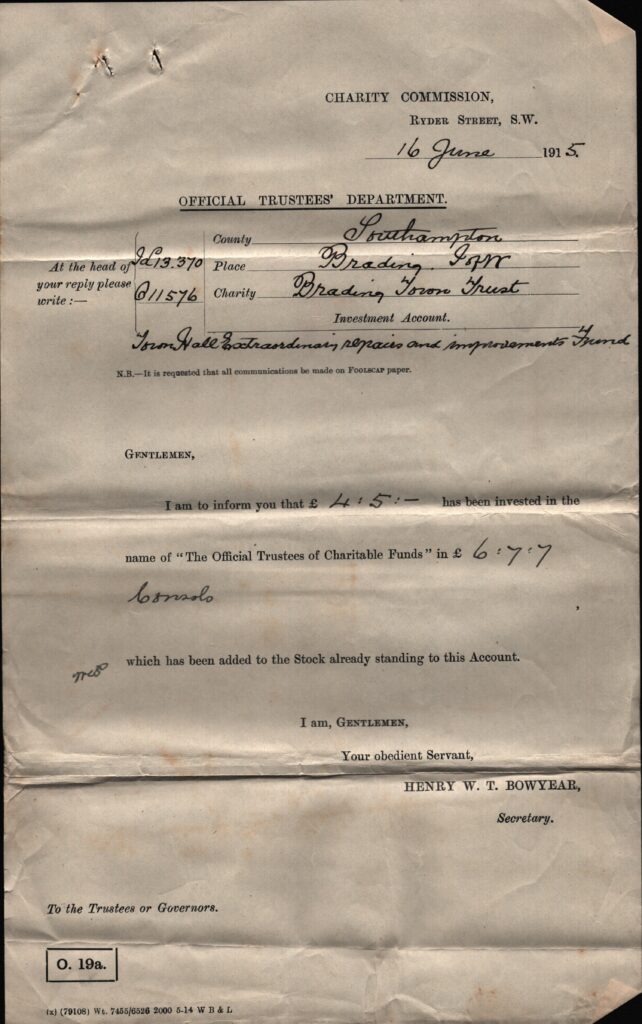 CHARITY COMMISSION,
RYDER STREET, S.W.
16 June 1915.
OFFICIAL TRUSTEES' DEPARTMENT.
At the head of
your reply please
write :—
13.370
11576
County Southampton
Place Brading. I of W
Charity Brading Town Trust
Investment Account.
Town Hall Extraordinary repairs and improvements Fund
N.B.—It is requested that all communications be made on FOOLSCAP paper.
GENTLEMEN,
I am to inform you that £ 4 : 5 : — has been invested in the
name of "The Official Trustees of Charitable Funds" in £ 6 : 7 : 7
Consols ,
which has been added to the Stock already standing to this Account.
I am, GENTLEMEN,
Your obedient Servant,
HENRY W. T. BOWYEAR,
Secretary.
To the Trustees or Governors.
O. 19a.
(x) (79108) Wt. 7455/6526 2000 5-14 W B & L